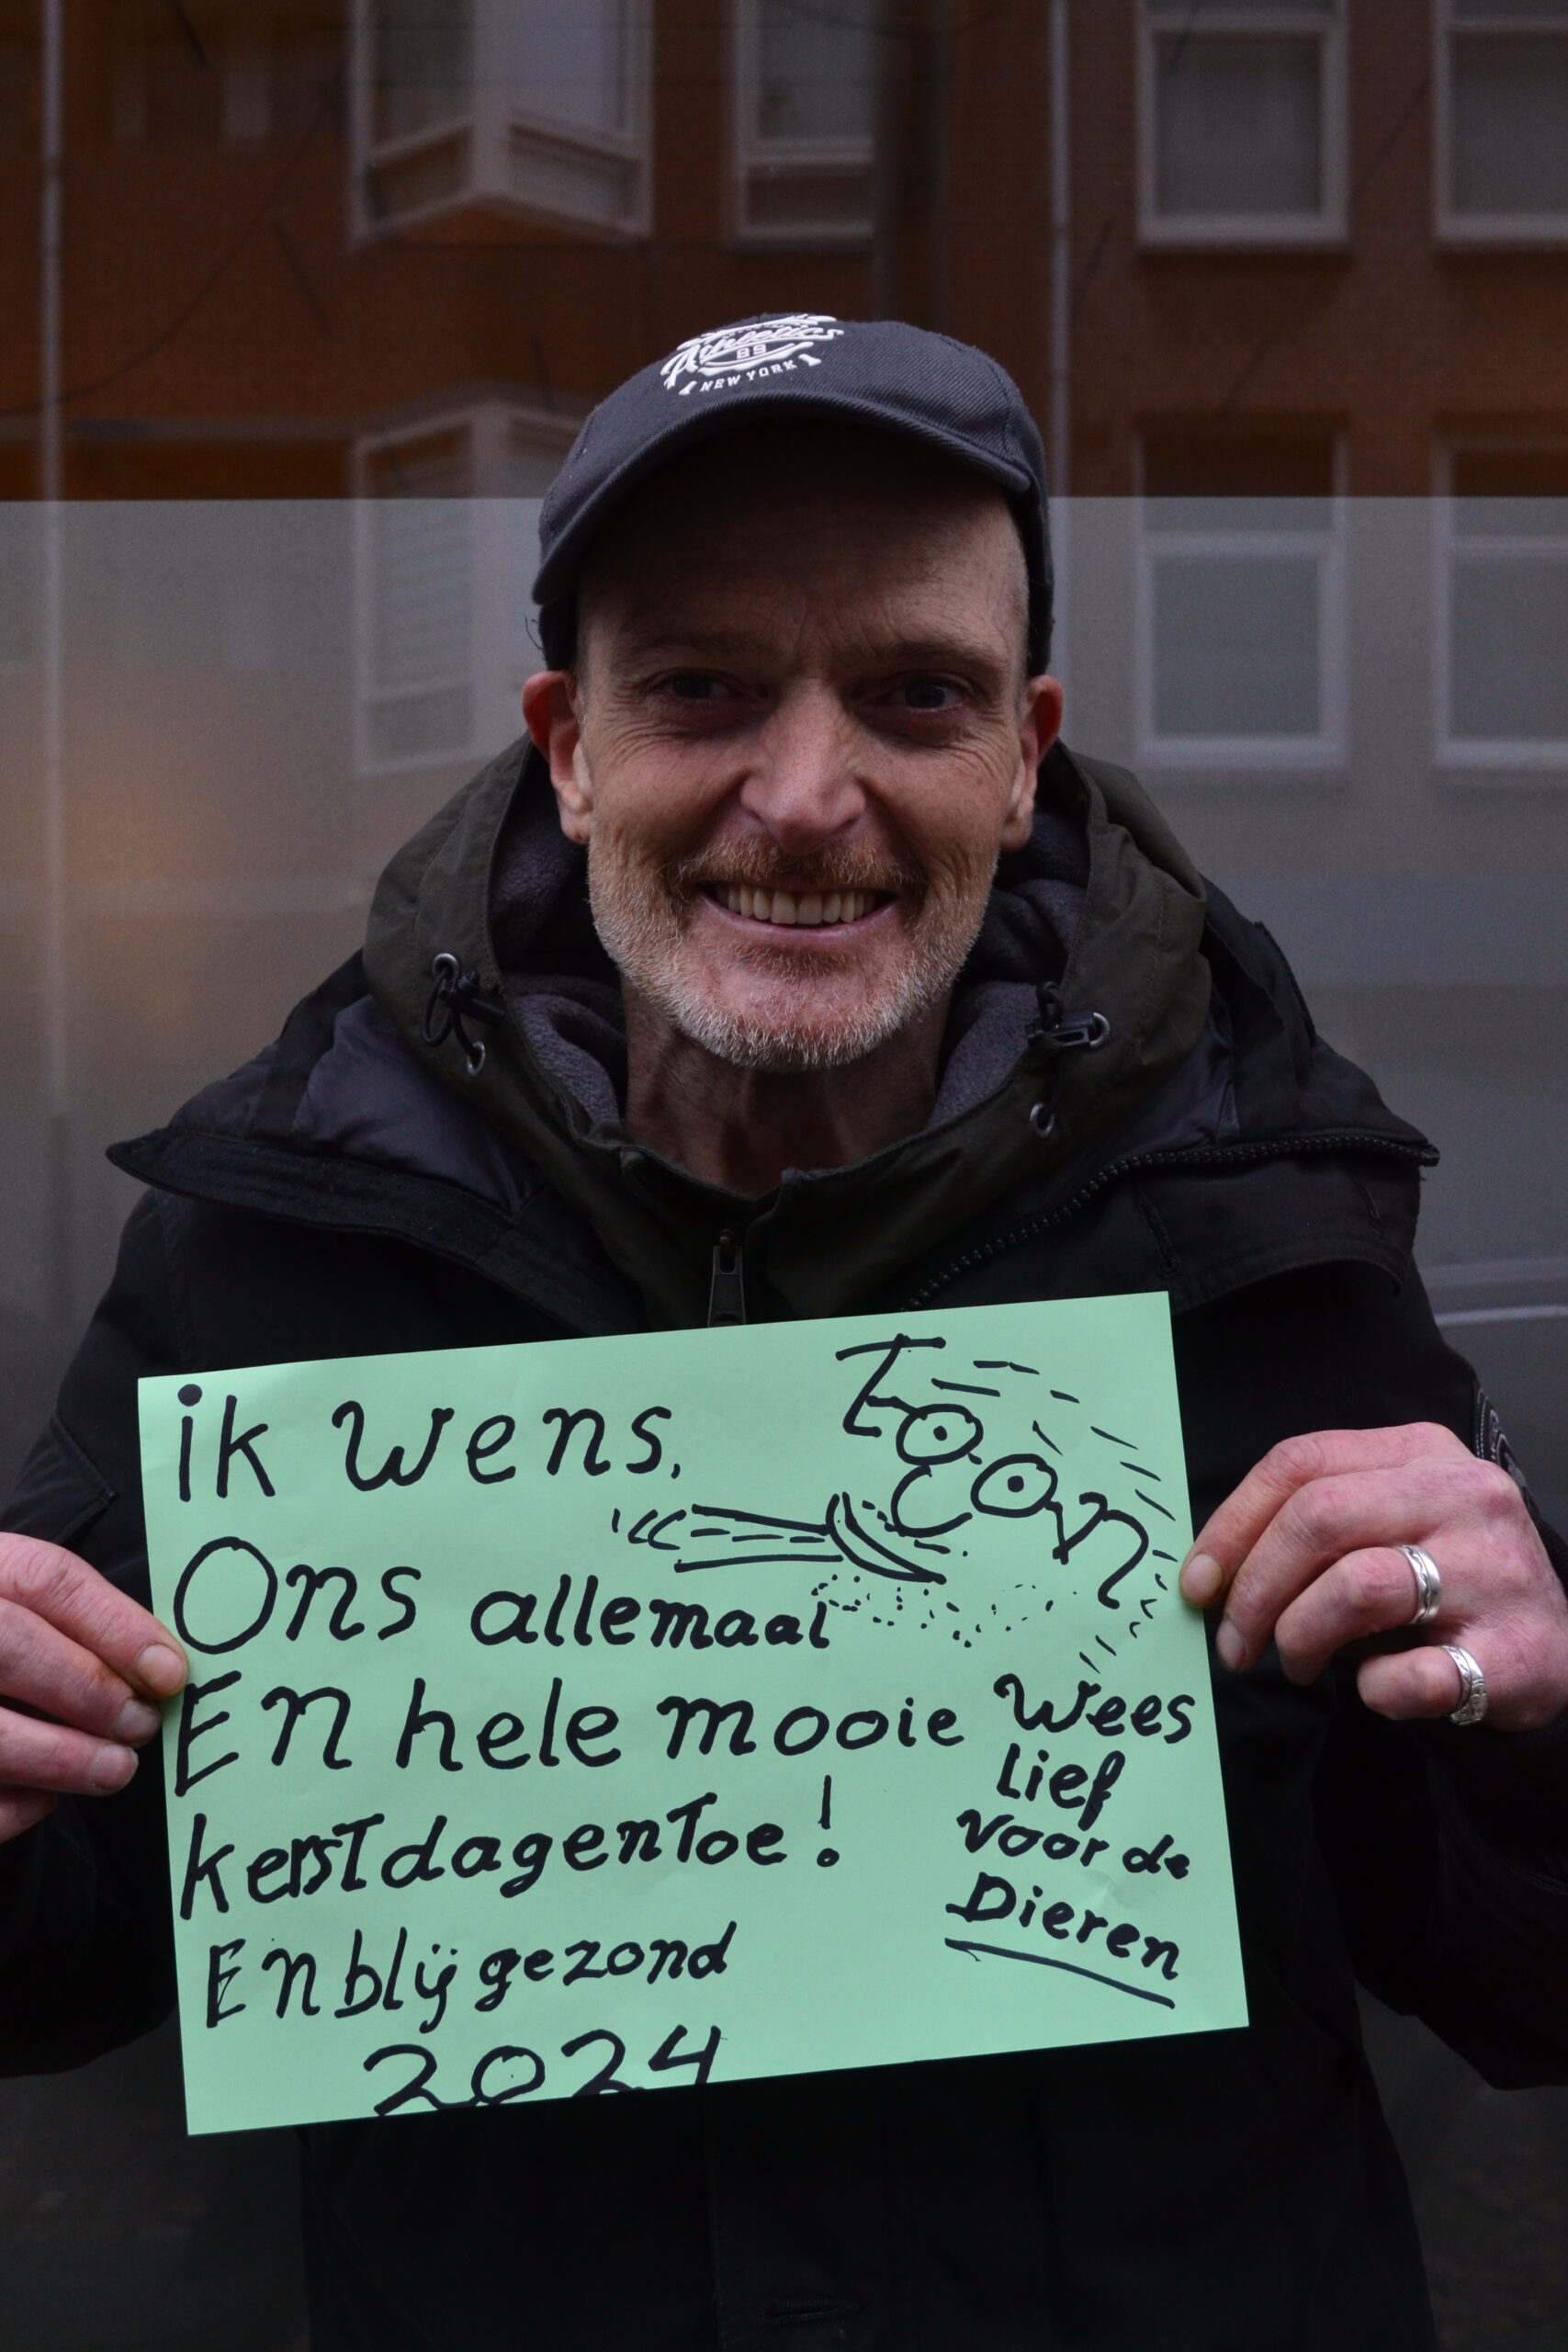 Athletics
89
NEW YORK
ik wens,
Ons allemaal
En hele mooie
kerstdagen Toe!
En blij gezond
2024
Toon
Wees
lief
voor de
Dieren